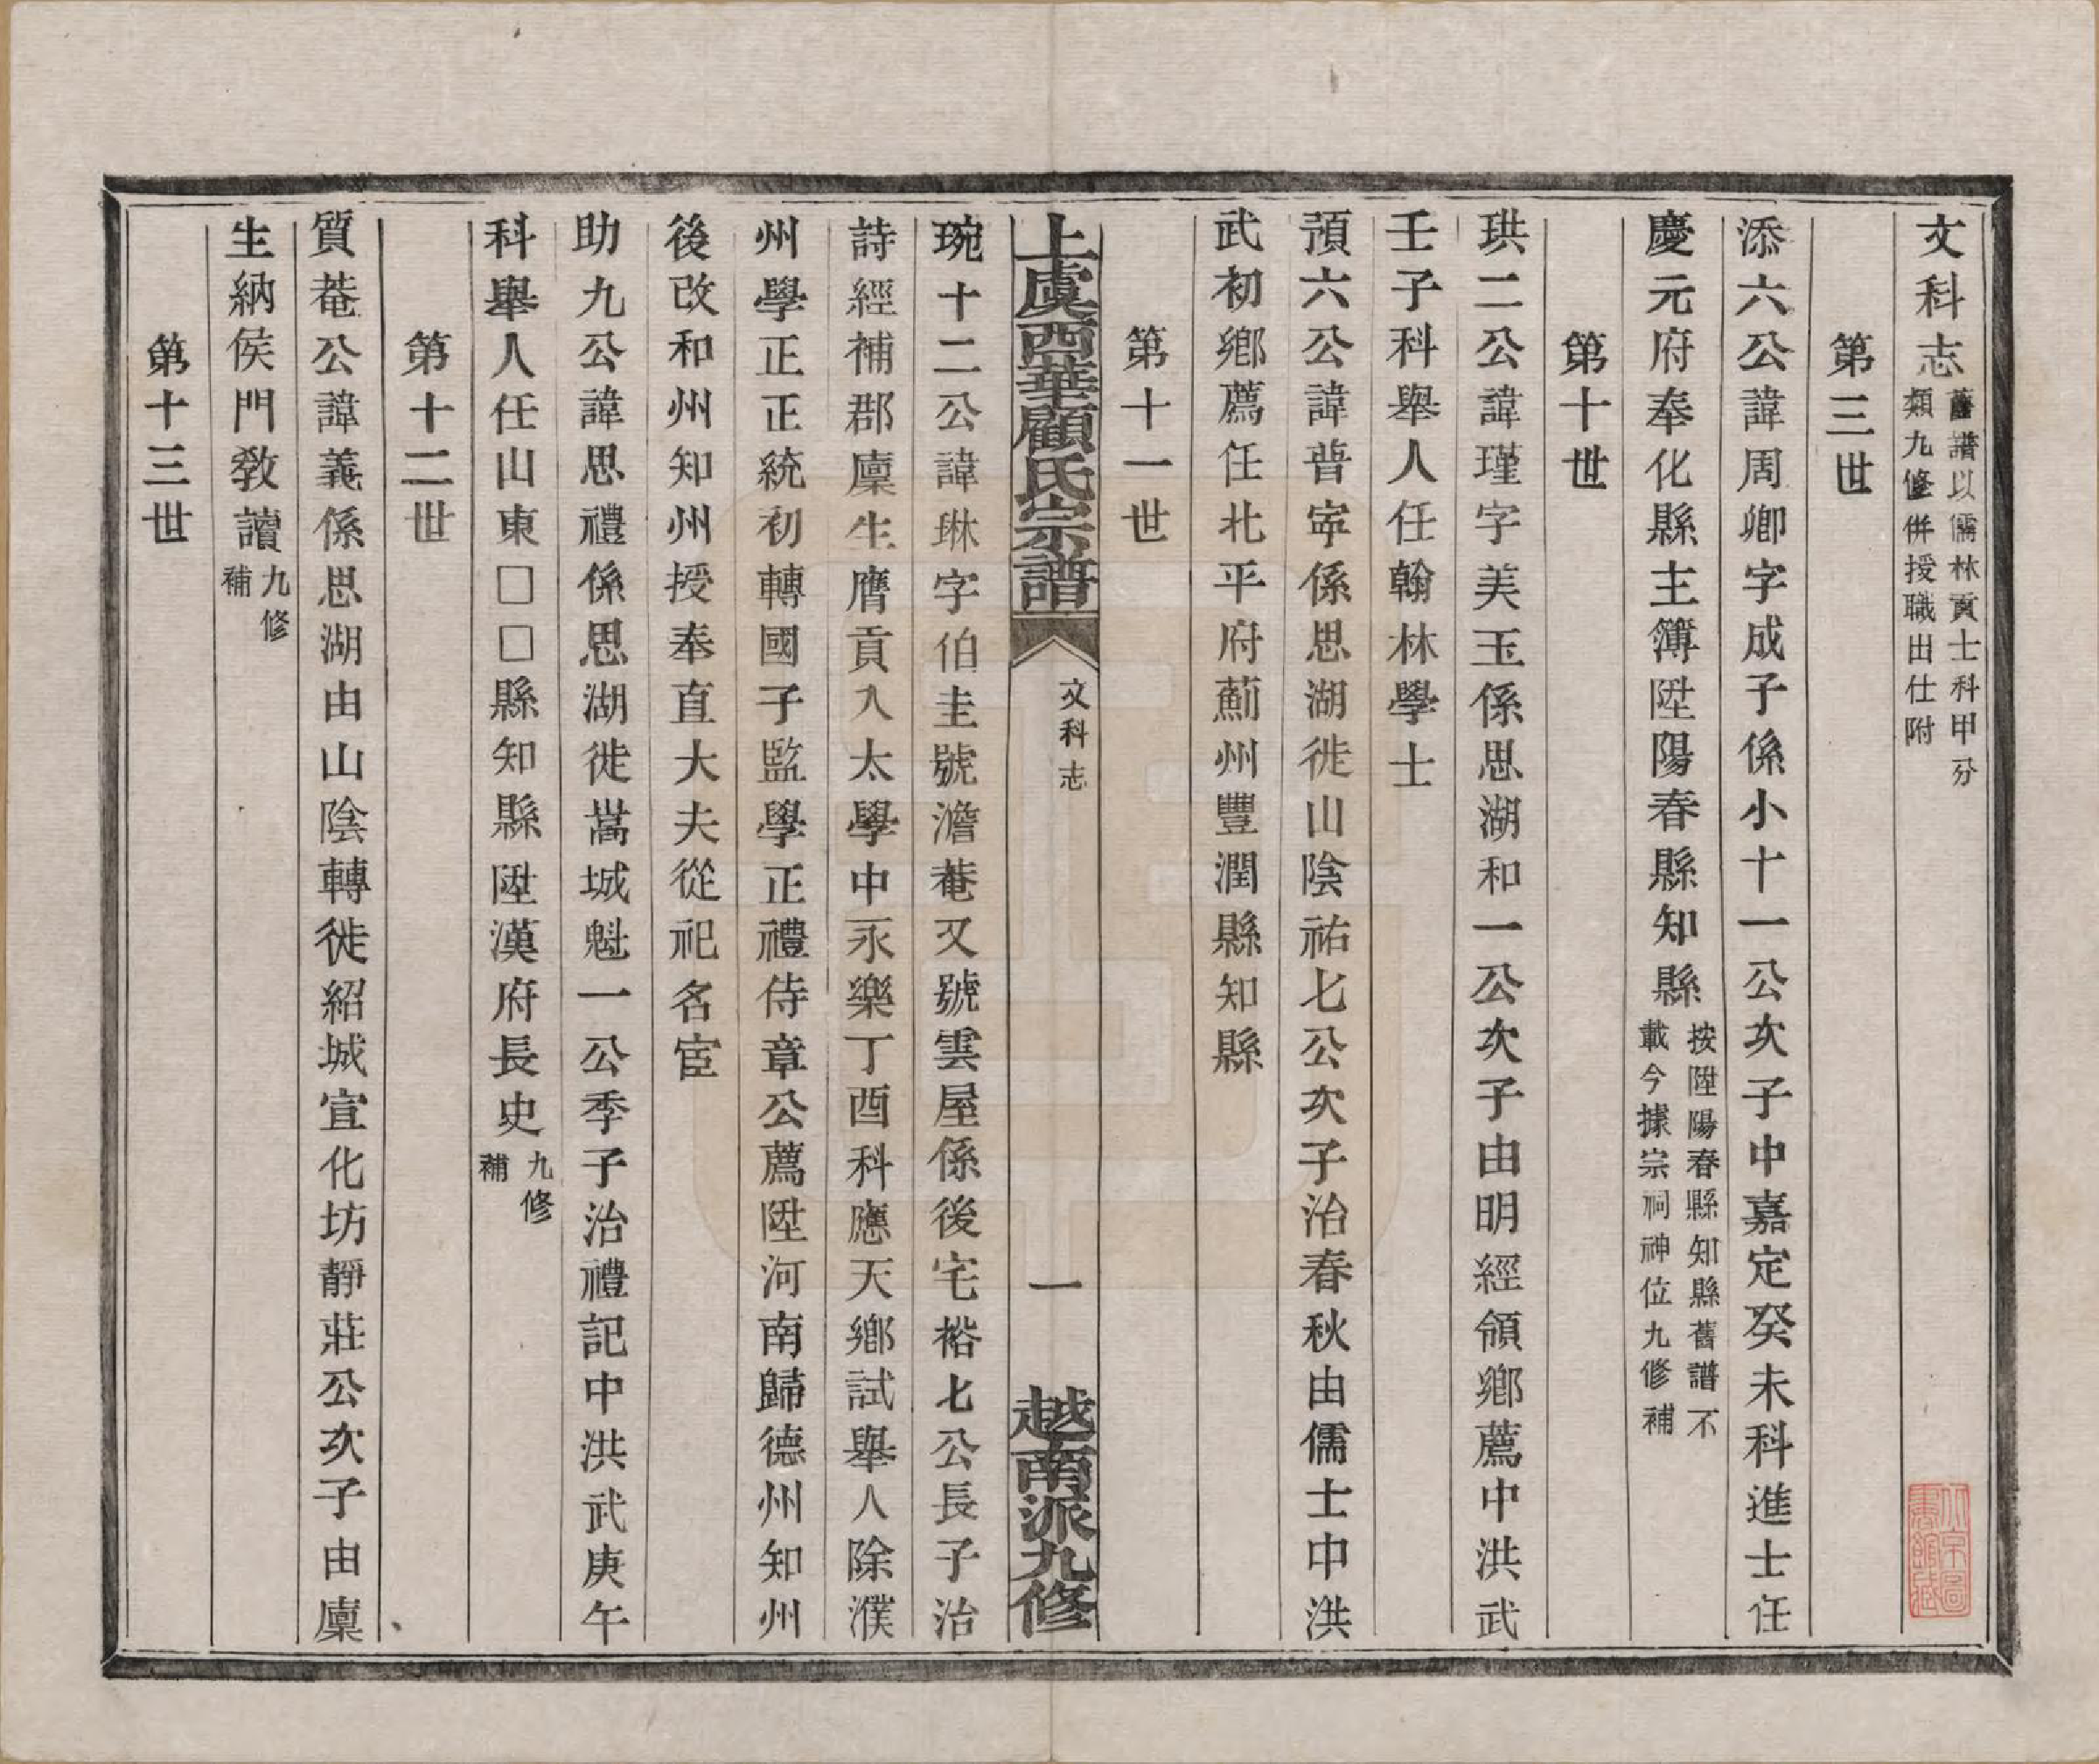 文科志舊譜以儒林貢士科甲分類九修併授職出仕附
第三世
添六公諱周卿字成子係小十一公次子中嘉定癸未科進士任
慶元府奉化縣主簿陞陽春縣知縣按陞陽春縣知縣舊譜不載今據宗祠神位九修補
第十世
珙二公諱瑾字美玉係思湖和一公次子由明經領鄉薦中洪武
壬子科舉人任翰林學士
預六公諱普寧係思湖徙山陰祐七公次子治春秋由儒士中洪
武初鄉薦任北平府薊州豐潤縣知縣
第十一世
上虞西華顧氏宗譜
文科志
一
越南派九修
琬十二公諱琳字伯圭號澹菴又號雲屋係後宅裕七公長子治
詩經補郡廩生膺貢入太學中永樂丁酉科應天鄉試舉人除濮
州學正正統初轉國子監學正禮侍章公薦陞河南歸德州知州
後改和州知州授奉直大夫從祀名宦
助九公諱思禮係思湖徙嵩城魁一公季子治禮記中洪武庚午
科舉人任山東□□縣知縣陞漢府長史九修補
第十二世
質菴公諱義係思湖由山陰轉徙紹城宣化坊靜莊公次子由廩
生納侯門教讀九修補
第十三世